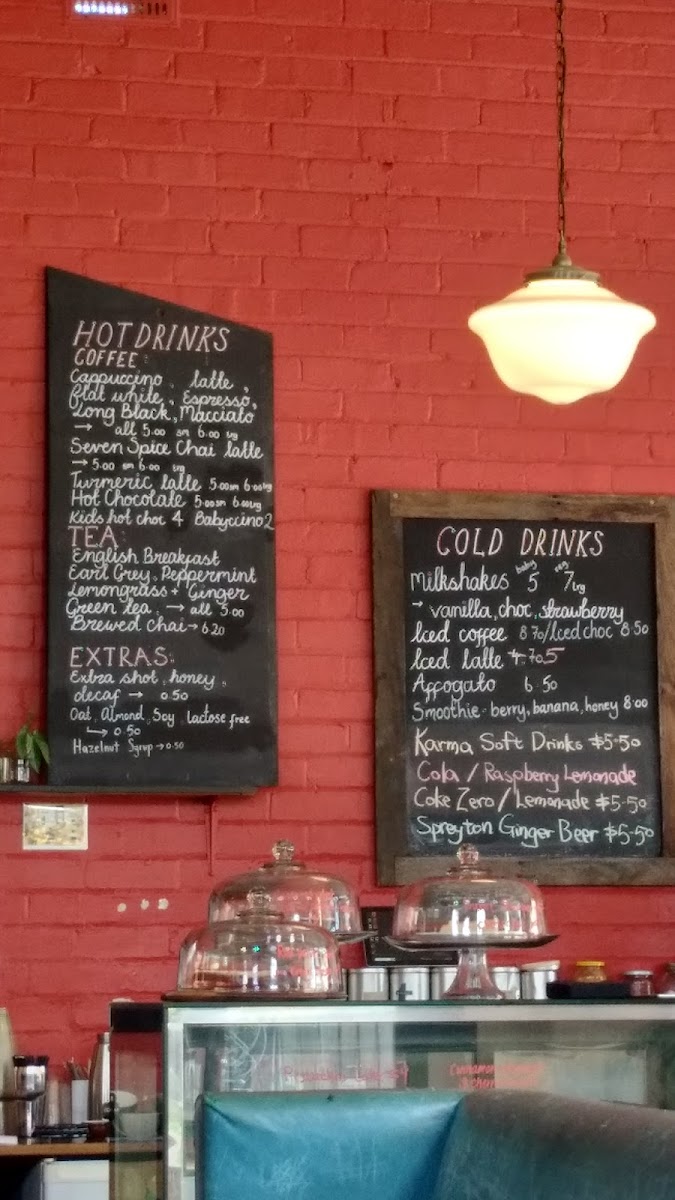 HOT DRINKS
COFFEE:
Cappuccino, latte,
flat white, Espresso,
Long Black, Macciato
→ all 5.00 sm 6.00 lrg
Seven Spice Chai latte
→ 5.00 sm 6.00 lrg
Turmeric latte 5.00sm 6.00lrg
Hot Chocolate 5.00sm 6.00lrg
Kids hot choc 4 Babyccino 2
TEA:
English Breakfast
Earl Grey, Peppermint
Lemongrass + Ginger
Green tea, → all 5.00
Brewed chai → 6.20
EXTRAS:
Extra shot, honey,
decaf → 0.50
Oat, Almond, Soy, Lactose free
↳ 0.50
Hazelnut Syrup → 0.50
COLD DRINKS
Milkshakes baby 5 reg 7 lrg
→ vanilla, choc, strawberry
Iced coffee 8.70/Iced choc 8.50
Iced latte 4.70 5
Affogato 6.50
Smoothie - berry, banana, honey 8.00
Karma Soft Drinks $5-50
Cola / Raspberry Lemonade
Coke Zero / Lemonade $5-50
Spreyton Ginger Beer $5-50